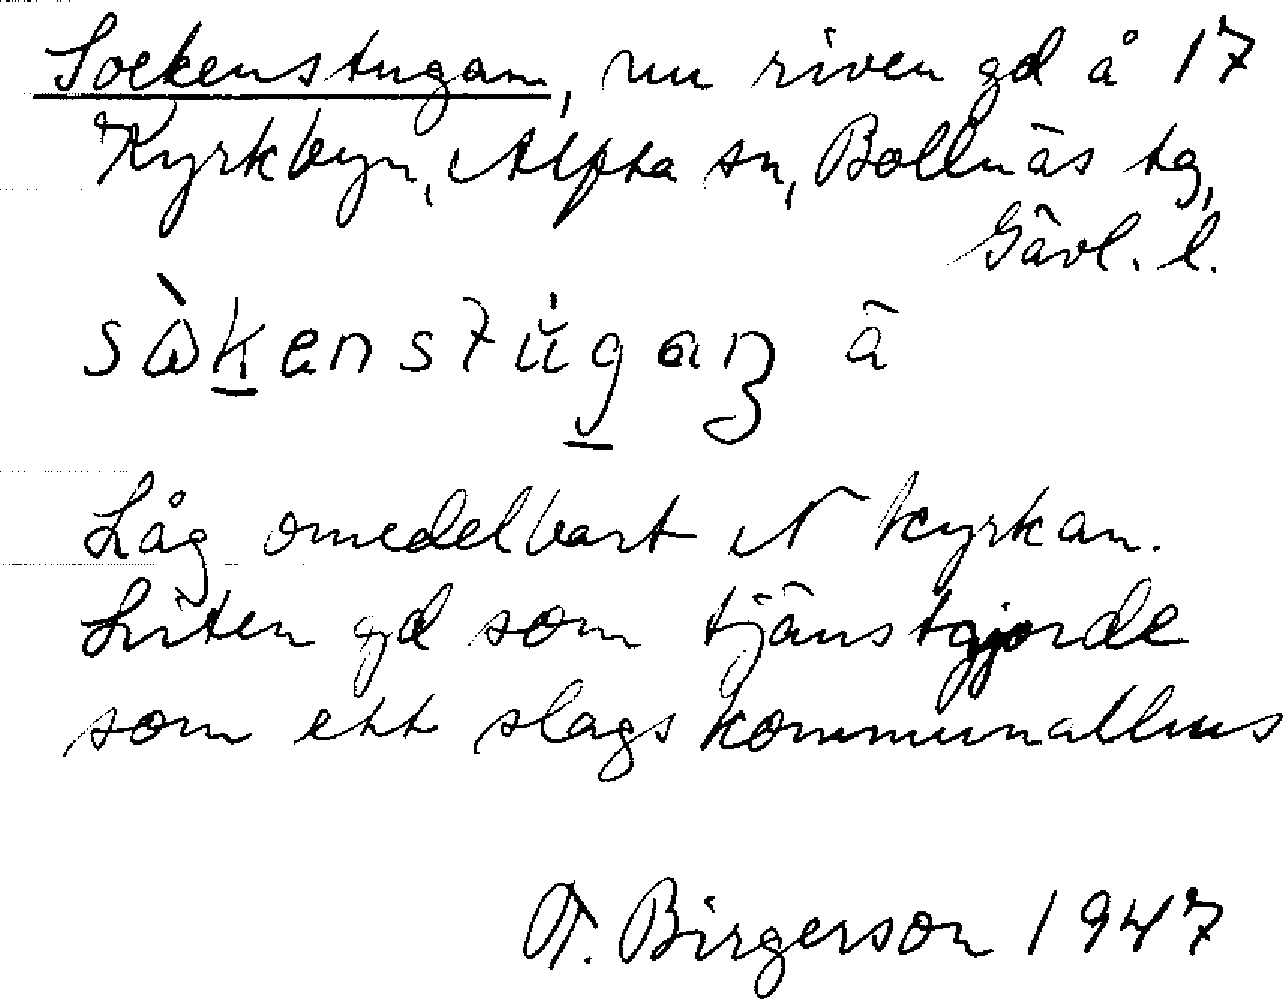 Sockenstugan, nu riven gd å 17
Kyrkbyn, Alfta sn, Bollnäs tg,
Gävl. l.
Låg omedelbart N kyrkan.
Liten gd som tjänstgjorde
som ett slags kommunalhus
T. Birgerson 1947